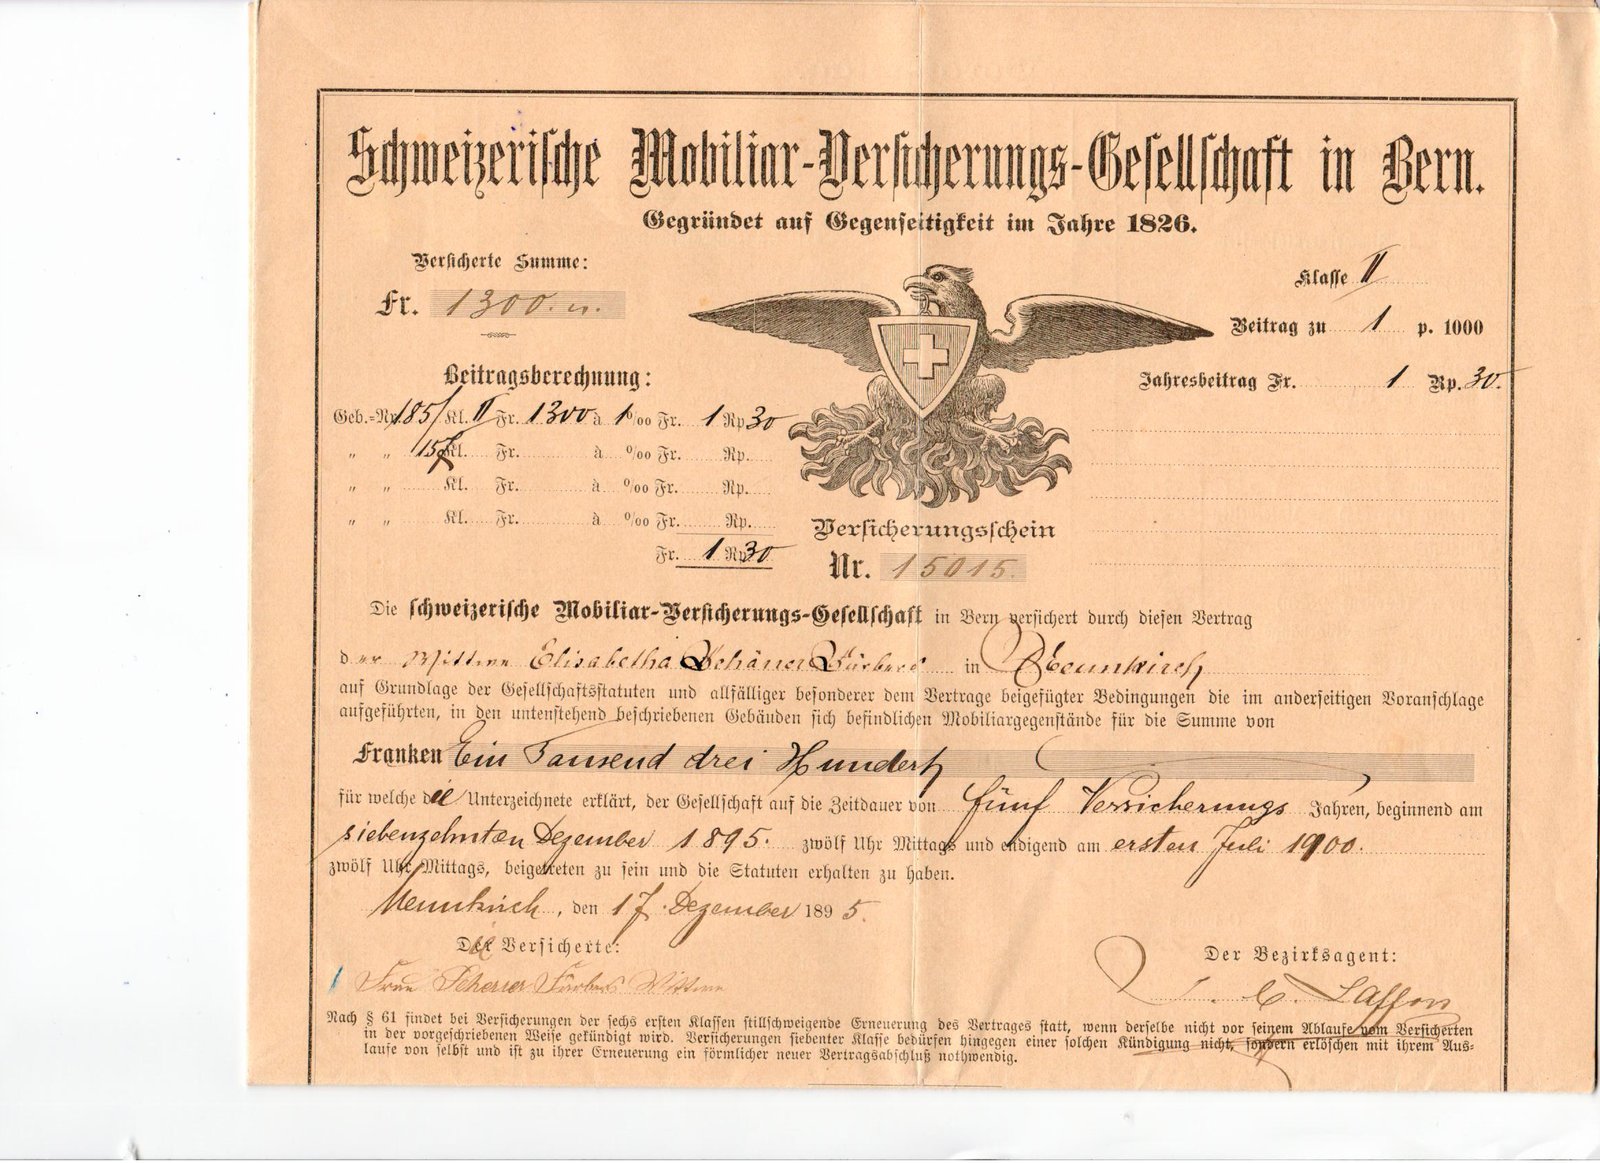 Schweizerische Mobiliar-Versicherungs-Gesellschaft in Bern.
Gegründet auf Gegenseitigkeit im Jahre 1826.
Versicherte Summe:
Fr. 1300.
Klasse II
Beitrag zu 1 p. 1000
Jahresbeitrag Fr. 1 Rp. 30.
Beitragsberechnung:
Geb.=Nr. 185/ Kl. II Fr. 1300 à 1 %00 Fr. 1 Rp 30
" " 157 Kl. Fr. à %00 Fr. Rp.
" " Kl. Fr. à %00 Fr. Rp.
" " Kl. Fr. à %00 Fr. Rp.
Fr. 1 Rp 30
Versicherungsschein
Nr. 15015.
Die schweizerische Mobiliar-Versicherungs-Gesellschaft in Bern versichert durch diesen Vertrag
der Wittwe Elisabetha in Neunkirch
auf Grundlage der Gesellschaftsstatuten und allfälliger besonderer dem Vertrage beigefügter Bedingungen die im anderseitigen Voranschlage
aufgeführten, in den untenstehend beschriebenen Gebäuden sich befindlichen Mobiliargegenstände für die Summe von
Franken Ein Tausend drei Hundert
für welche die Unterzeichnete erklärt, der Gesellschaft auf die Zeitdauer von fünf Versicherungs Jahren, beginnend am
siebenzehnten Dezember 1895. zwölf Uhr Mittags und endigend am ersten Juli 1900.
zwölf Uhr Mittags, beigetreten zu sein und die Statuten erhalten zu haben.
Neunkirch, den 17. Dezember 1895.
Die Versicherte:
Der Bezirksagent:
Frau Wittwe
C. Laffon
Nach § 61 findet bei Versicherungen der sechs ersten Klassen stillschweigende Erneuerung des Vertrages statt, wenn derselbe nicht vor seinem Ablaufe vom Versicherten
in der vorgeschriebenen Weise gekündigt wird. Versicherungen siebenter Klasse bedürfen hingegen einer solchen Kündigung nicht, sondern erlöschen mit ihrem Aus=
laufe von selbst und ist zu ihrer Erneuerung ein förmlicher neuer Vertragsabschluß nothwendig.